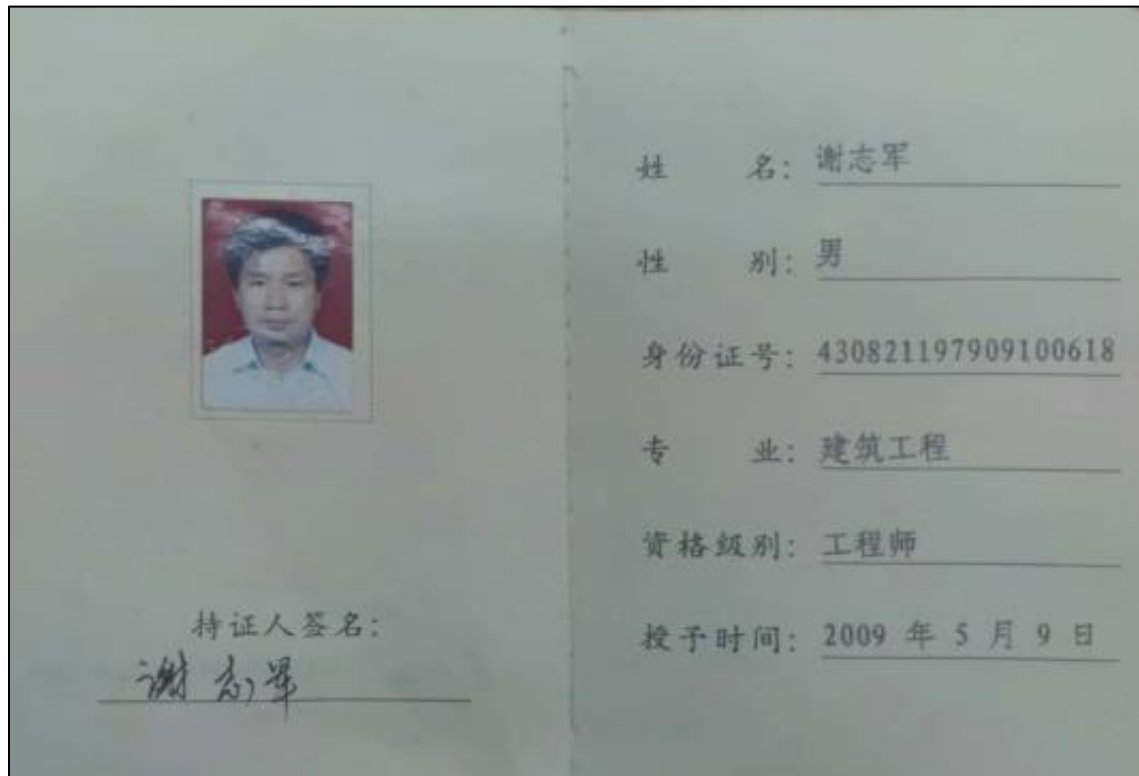 持证人签名:
谢志军
姓 名: 谢志军
性 别: 男
身份证号: 430821197909100618
专 业: 建筑工程
资格级别: 工程师
授予时间: 2009 年 5 月 9 日